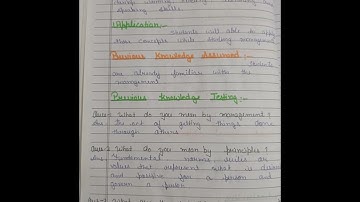 speaking skills.
Application:-
students will able to apply
their concepts while studying management
Previous Knowledge Assumed:- Students
are already familiar with the
management
Previous Knowledge Testing:-
Ques-1 What do you mean by management?
Ans. The art of getting things done
through others.
Ques-2 What do you mean by principles?
Ans. Fundamental norms, rules or
values that represent what is
and positive for a person and
govern a